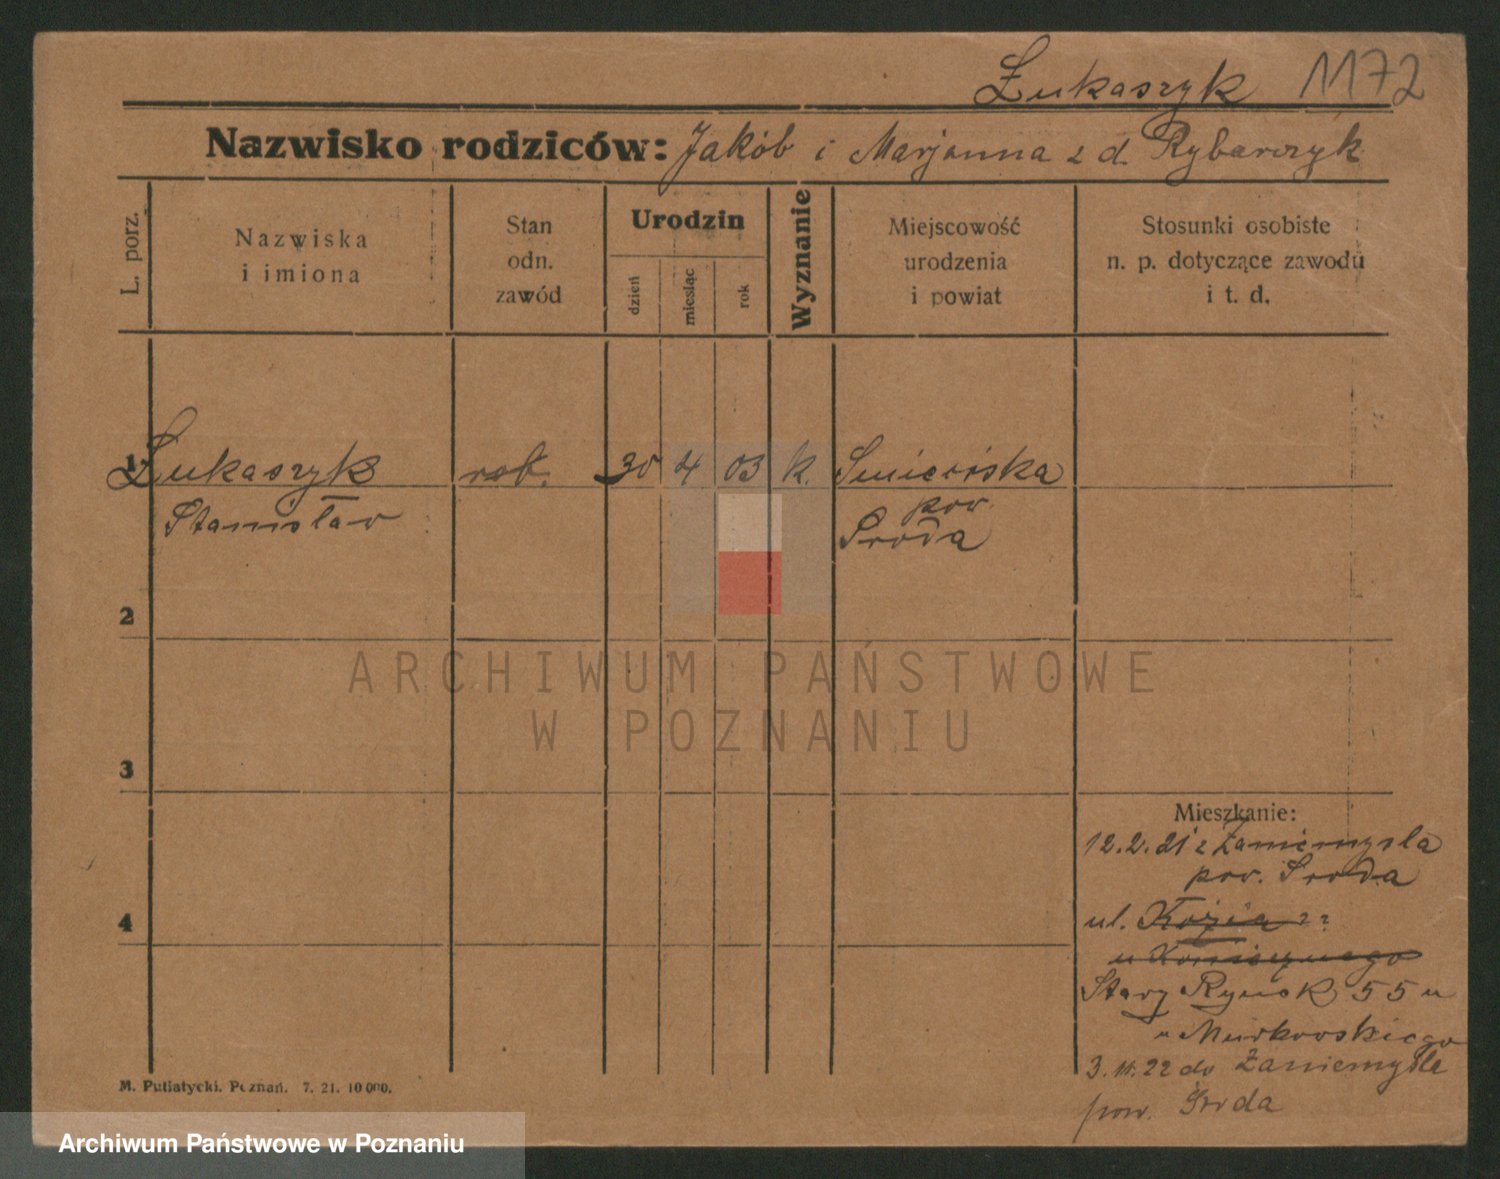 Łukaszyk 1172
Nazwisko rodziców: Jakób i Marjanna z d. Rybarczyk
L. porz.
Nazwiska
i imiona
Stan
odn.
zawód
Urodzin
dzień
miesiąc
rok
Wyznanie
Miejscowość
urodzenia
i powiat
Stosunki osobiste
n. p. dotyczące zawodu
i t. d.
1 Łukaszyk rob. 30 4 03 k.
Stanisław pow.
Środa
2
ARCHIWUM PAŃSTWOWE
W POZNANIU
3
Mieszkanie:
12.2.21 z Zaniemyśla
pow. Środa
4
ul. Kozia 22
Stary Rynek 55 u
3.11.22 do Zaniemyśla
pow. Środa
M. Putiatycki. Poznań. 7. 21. 10 000.
Archiwum Państwowe w Poznaniu